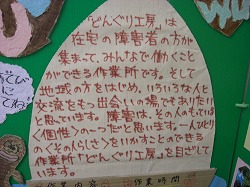 "どんぐり工房"は
在宅の障害者の方が
集まって、みんなで働くこと
ができる作業所です。そして
地域の方をはじめ、いろいろな人と
交流をもつ出会いの場でもありたい
と思っています。障害は、その人のもっている
〈個性〉の一つだと思います。一人ひとり
のくそのらしさ〉をいかすことのできる
作業所「どんぐり工房」を目ざして
います。
作業内容
作業時間